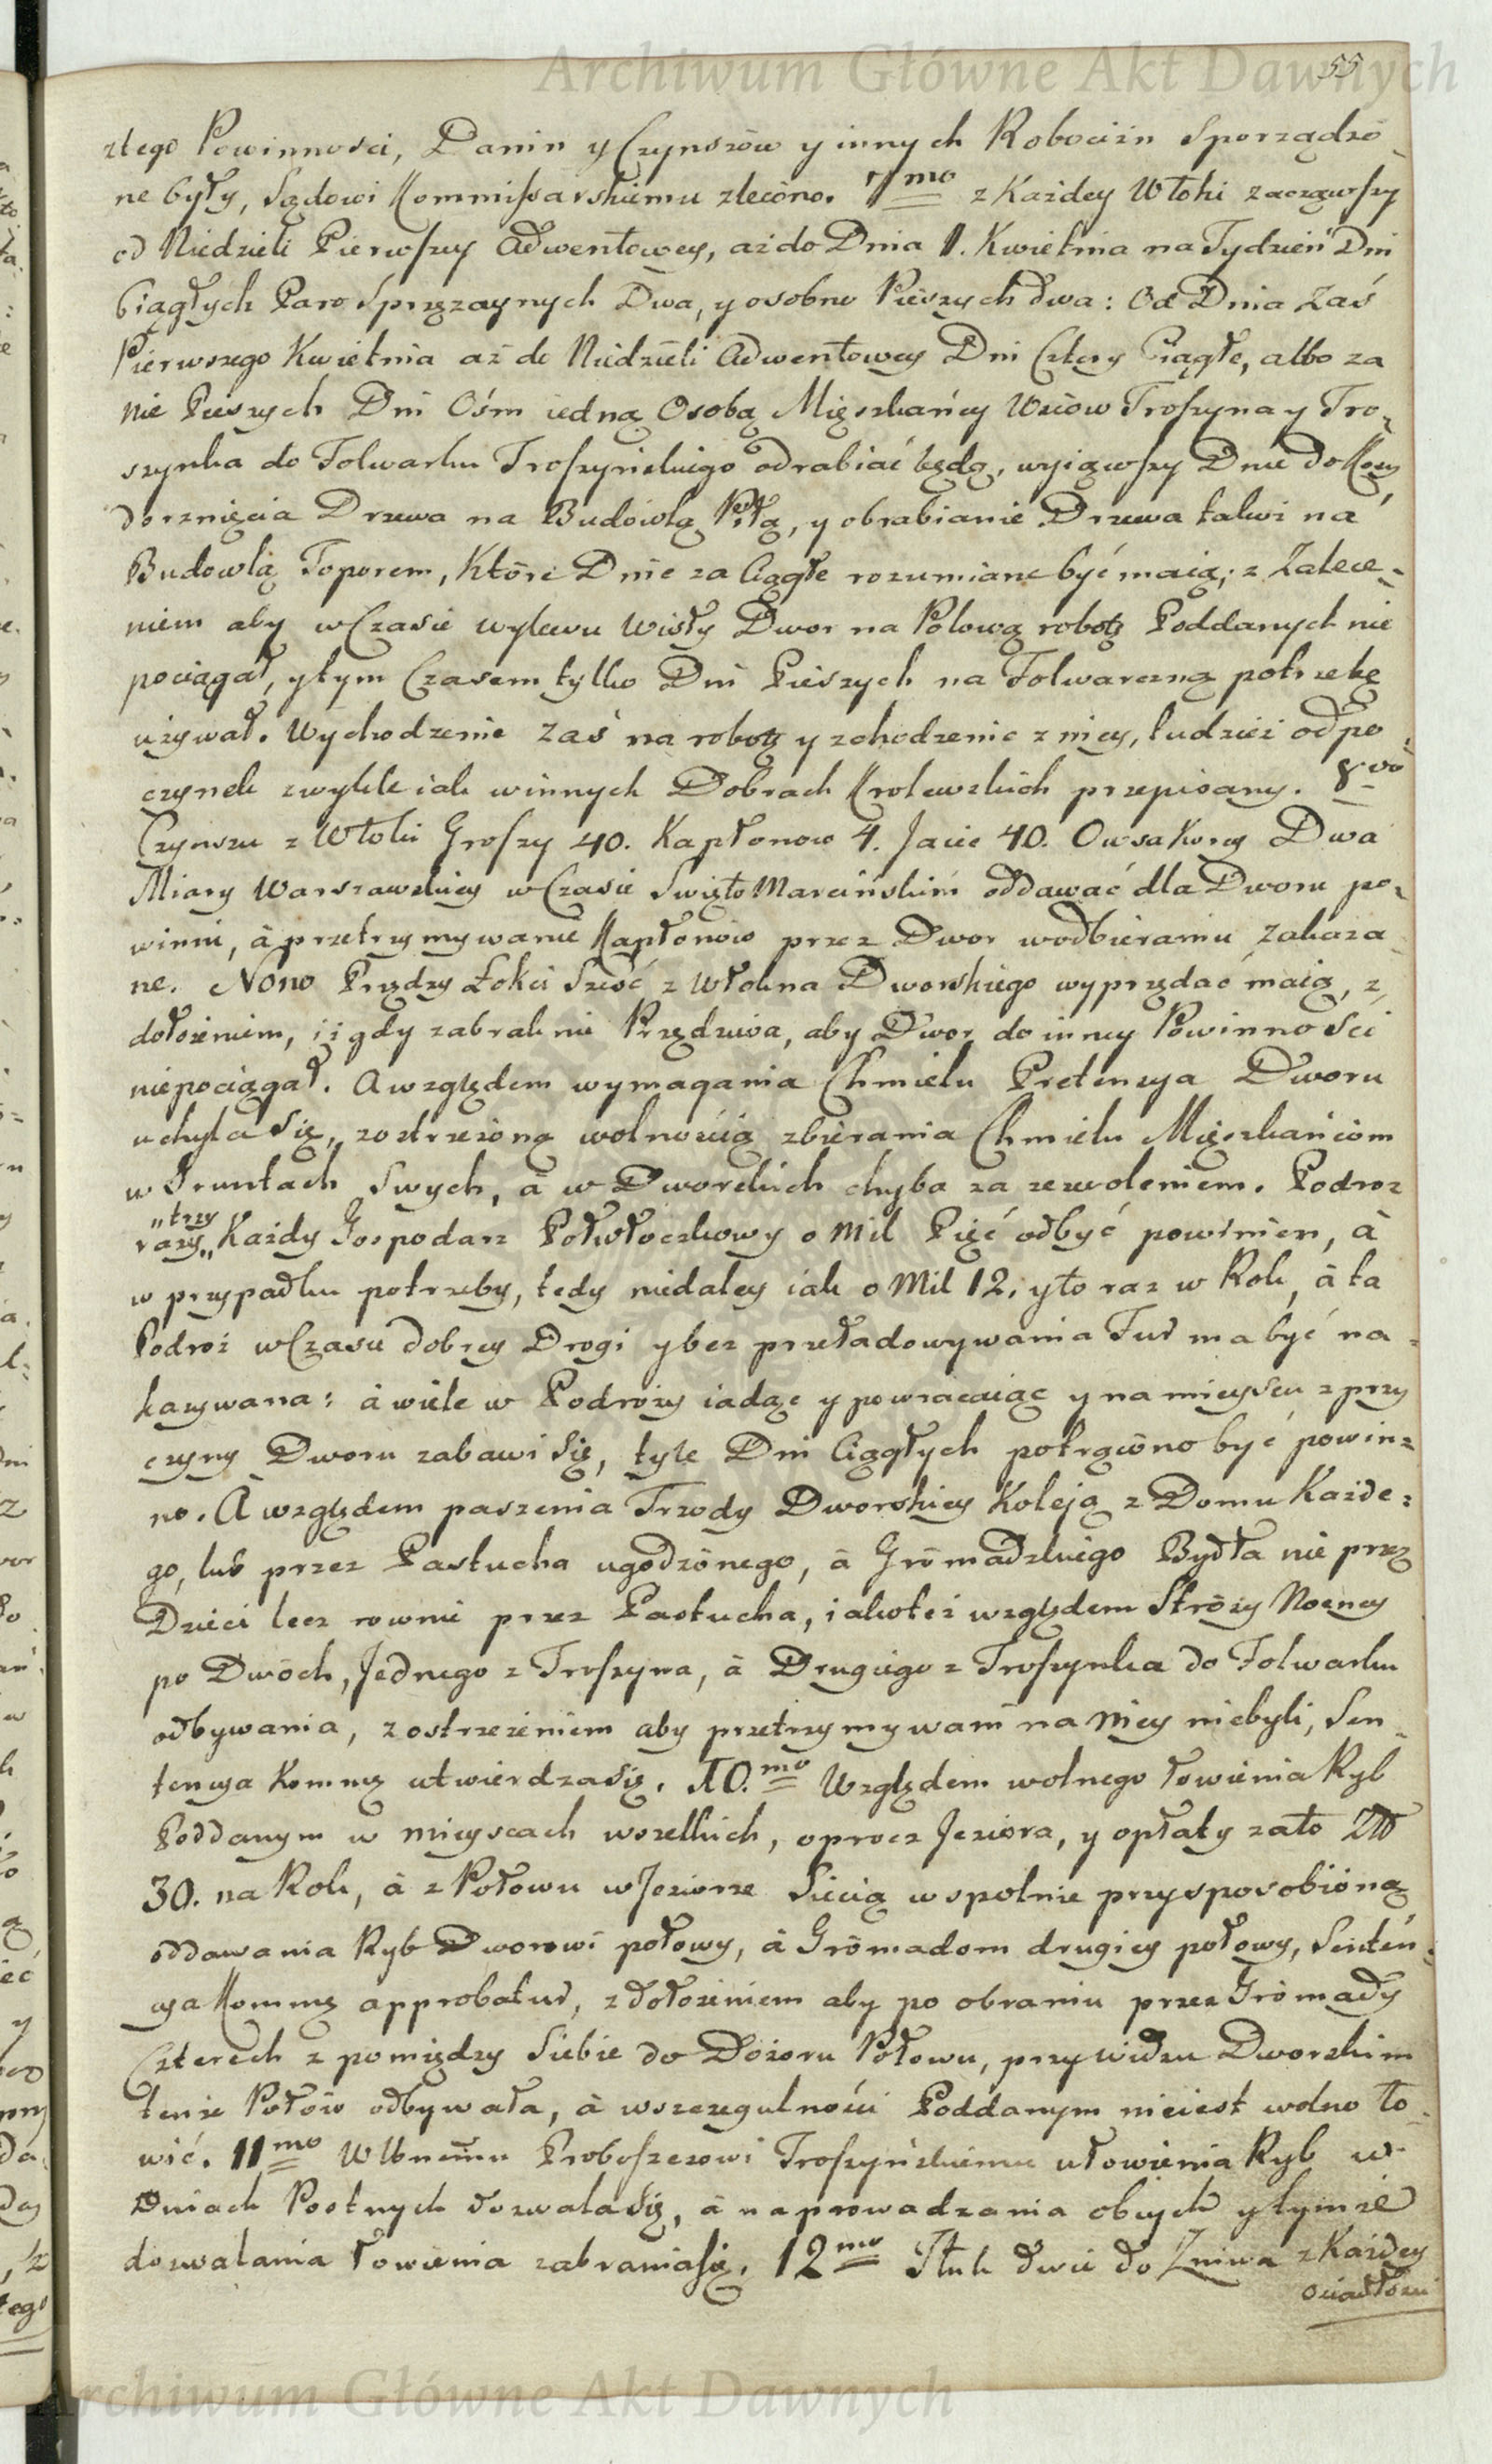 Archiwum Główne Akt Dawnych
55
złego Powinnosci, Danin y Czynszow y innych Robocizn Sporządzo„
ne były, Sądowi Kommissarskiemu zlecono. 7mo z Każdey Włoki zacząwszy
od Niedzieli Pierwszey Adwentowey, aż do Dnia 1. Kwietnia na Tydzien Dni
Ciągłych Paro Sprzęzaynych Dwa, y osobno Pieszych dwa: Od Dnia Zaś
Pierwszego Kwietnia aż do Niedzieli Adwentowey Dni Cztery Ciągłe, albo za
nie Pieszych Dni Ośm iedną Osobą Mięszkańcy Wsiow Troszyna y Tro„
szynka do Folwarku Troszyńskiego odrabiać będą, wyiąwszy Dnie do Kosy
dorznięcia Drzewa na Budowlą Piłą, y obrabianie Drzewa takwi na
Budowlą Toporem, Które Dnie za Ciągłe rozumiane być maią; z Zalece„
niem aby w Czasie wylewu Wisły Dwor na Polową robotę Poddanych nie
pociągał, y tym Czasem tylko Dni Pieszych na Folwarczną potrzebę
używał. Wychodzenie Zaś na robotę y zchodzenie z niey, tudzież odpo„
czynek zwykle iak w innych Dobrach Krolewskich przepisany. 8vo
Czynszu z Włoki Groszy 40. Kapłonow 4. Jaiec 40. Owsa Korcy Dwa
Miary Warszawskiey w Czasie Swięto Marcińskim oddawać dla Dworu po„
winni, à przetrzymywanie Kapłonow przez Dwor w odbieraniu Zakaza„
ne. Nono Przędzy Łokci Sześć z Włokna Dworskiego wyprzędać maią, z
dołożeniem, iż gdy zabraknie Przędziwa, aby Dwor do inney Powinności
niepociągał. A względem wymagania Chmielu Pretensya Dworu
uchyla Się, zostrzeżoną wolnością zbierania Chmielu Mięszkańcom
w Gruntach Swych, à w Dworskich chyba za zezwoleniem. Podroz
„trzy
razy„ Każdy Gospodarz Połwłoczkowy o Mil Pięć odbyć powinien, à
w przypadku potrzeby, tedy niedaley iak o Mil 12. y to raz w Rok, à ta
Podroż w Czasie dobrey Drogi y bez przeładowywania Fur ma być na„
kazywana: à wiele w Podroży iadąc y powracaiąc y na mieyscu z przy
czyny Dworu zabawi Się, tyle Dni Ciągłych potrącono być powin„
no. A względem paszenia Trzody Dworskiey Koleją z Domu Każde„
go, lub przez Pastucha ugodzonego, à Gromadzkiego Bydła nie przez
Dzieci lecz rownie przez Pastucha, iakoteż względem Stroży Nocney
po Dwoch, Jednego z Troszyna, à Drugiego z Troszynka do Folwarku
odbywania, z ostrzeżeniem aby przetrzymywani na niey niebyli, Sen„
tencya Kommę utwierdza się. 10.mo Względem wolnego łowienia Ryb
Poddanym w mieyscach wszelkich, oprocz Jeziora, y opłaty zato Zło
30. na Rok, à z Połowu w Jeziorze Siecią wspolnie przysposobioną
oddawania Ryb Dworowi połowy, à Gromadom drugiey połowy, Senten„
cya Kommę approbatur, z dołożeniem aby po obraniu przez Gromady
Czterech z pomiędzy Siebie do Dozoru Połowu, przy widzu Dworskim
tenże Połow odbywała, à wszczegulności Poddanym nieiest wolno ło„
wić. 11mo Wlbnemu Proboszczowi Troszyńskiemu ułowienia Ryb w
Dniach Postnych dozwala Się, à naprowadzania obcych y tymże
dozwalania łowienia zabrania się. 12mo Tłuk dwie do Żniwa z Każdey
osiadłosci
Archiwum Główne Akt Dawnych